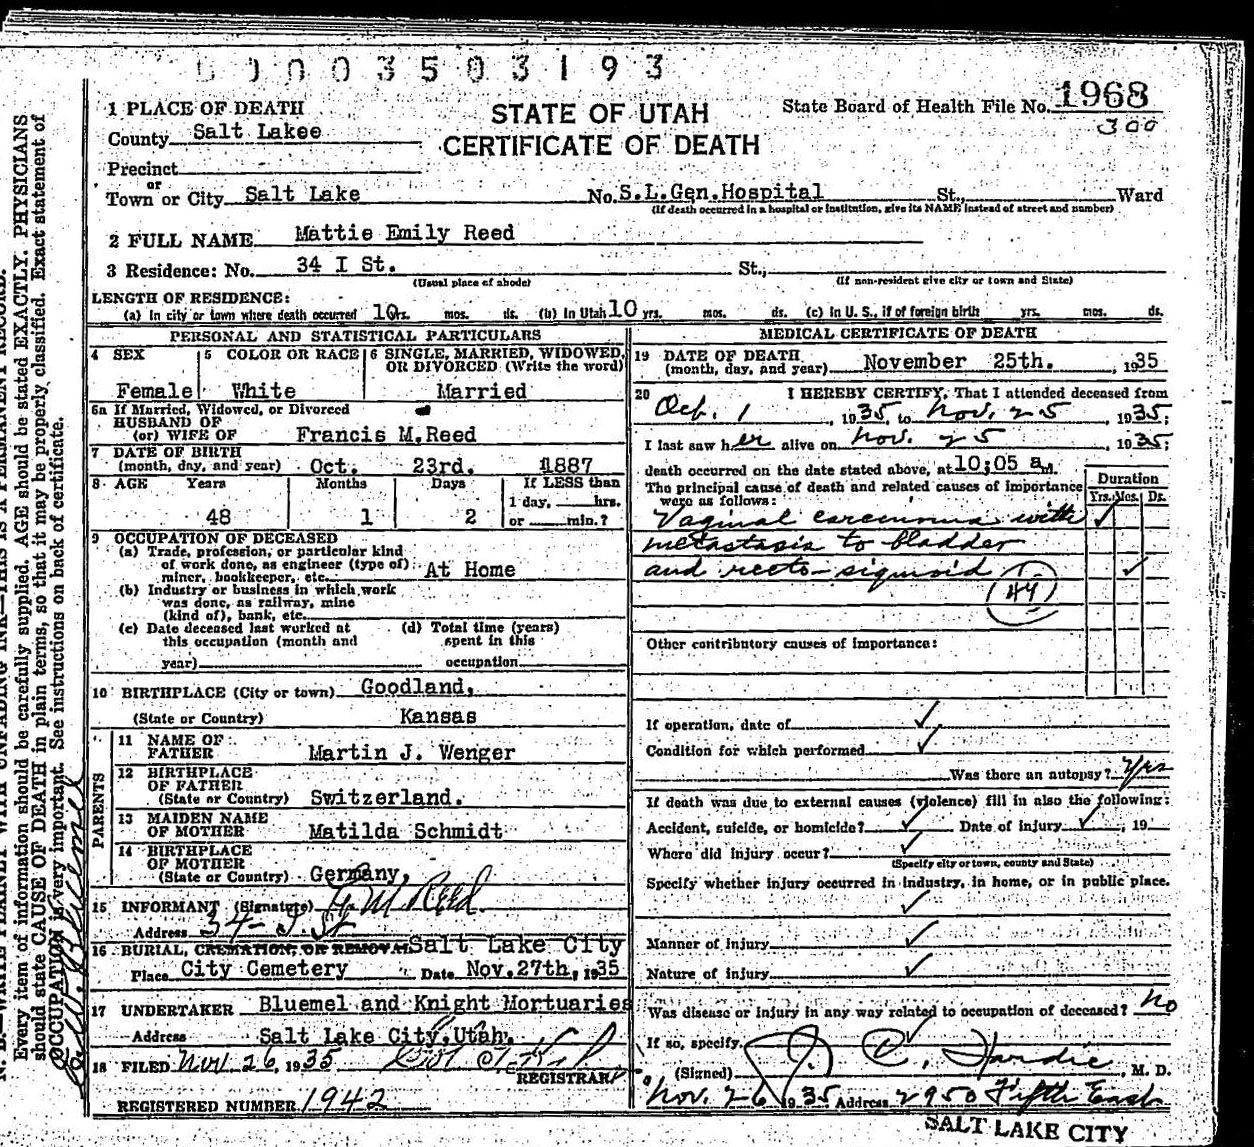 0 0 0 3 5 0 3 1 9 3
STATE OF UTAH
CERTIFICATE OF DEATH
State Board of Health File No. 1968
300
1 PLACE OF DEATH
County Salt Lakee
Precinct
or
Town or City Salt Lake No. S.L.Gen.Hospital St., Ward
(If death occurred in a hospital or institution, give its NAME instead of street and number)
2 FULL NAME Mattie Emily Reed
3 Residence: No. 34 I St. St.,
(Usual place of abode) (If non-resident give city or town and State)
LENGTH OF RESIDENCE:
(a) In city or town where death occurred 10 yrs. mos. ds. (b) In Utah 10 yrs. mos. ds. (c) In U. S., if of foreign birth yrs. mos. ds.
PERSONAL AND STATISTICAL PARTICULARS
4 SEX 5 COLOR OR RACE 6 SINGLE, MARRIED, WIDOWED,
OR DIVORCED (Write the word)
Female White Married
6a If Married, Widowed, or Divorced
HUSBAND OF
(or) WIFE OF Francis M.Reed
7 DATE OF BIRTH
(month, day, and year) Oct. 23rd. 1887
8 AGE Years Months Days If LESS than
1 day, hrs.
48 1 2 or min.?
9 OCCUPATION OF DECEASED
(a) Trade, profession, or particular kind
of work done, as engineer (type of)
miner, bookkeeper, etc. At Home
(b) Industry or business in which work
was done, as railway, mine
(kind of), bank, etc.
(c) Date deceased last worked at (d) Total time (years)
this occupation (month and spent in this
year) occupation
10 BIRTHPLACE (City or town) Goodland,
(State or Country) Kansas
PARENTS
11 NAME OF
FATHER Martin J. Wenger
12 BIRTHPLACE
OF FATHER
(State or Country) Switzerland.
13 MAIDEN NAME
OF MOTHER Matilda Schmidt
14 BIRTHPLACE
OF MOTHER
(State or Country) Germany,
15 INFORMANT (Signature) G.M Reed
Address 34- I. St
16 BURIAL, CREMATION, OR REMOVAL Salt Lake City
Place City Cemetery Date Nov.27th, 1935
17 UNDERTAKER Bluemel and Knight Mortuaries
Address Salt Lake City, Utah.
18 FILED Nov 26, 1935
REGISTRAR
REGISTERED NUMBER 1942
MEDICAL CERTIFICATE OF DEATH
19 DATE OF DEATH
(month, day, and year) November 25th. , 1935
20 I HEREBY CERTIFY, That I attended deceased from
Oct. 1 , 1935, to Nov. 25 , 1935;
I last saw her alive on Nov. 25 , 1935;
death occurred on the date stated above, at 10;05 a m.
The principal cause of death and related causes of importance
were as follows:
Duration
Yrs. Mos. Ds.
Vaginal carcinoma with
metastasis to bladder
and recto-sigmoid
44
Other contributory causes of importance:
If operation, date of
Condition for which performed
Was there an autopsy? Yes
If death was due to external causes (violence) fill in also the following:
Accident, suicide, or homicide? Date of injury , 19
Where did injury occur?
(Specify city or town, county and State)
Specify whether injury occurred in industry, in home, or in public place.
Manner of injury
Nature of injury
Was disease or injury in any way related to occupation of deceased? no
If so, specify
(Signed) J. C. Hardie , M. D.
Nov. 26 1935 Address 2950 Fifth East
SALT LAKE CITY
N. B.—WRITE PLAINLY WITH UNFADING INK—THIS IS A PERMANENT RECORD.
Every item of information should be carefully supplied. AGE should be stated EXACTLY. PHYSICIANS
should state CAUSE OF DEATH in plain terms, so that it may be properly classified. Exact statement of
OCCUPATION is very important. See instructions on back of certificate.